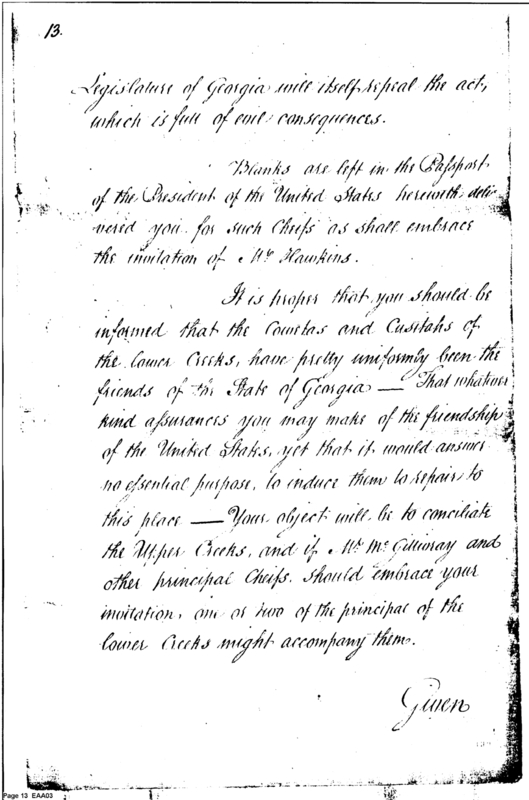 13.
Legislature of Georgia will itself repeal the act,
which is full of evil consequences.
Blanks are left in the Passport
of the President of the United States herewith deli
vered you for such Cheifs as shall embrace
the invitation of Mr Hawkins.
It is proper that you should be
informed that the Cowetas and Cusitahs of
the lower Creeks, have pretty uniformly been the
friends of the State of Georgia — That whatever
kind assurances you may make of the friendship
of the United States, yet that it would answer
no essential purpose, to induce them to repair to
this place — Your object will be to conciliate
the Upper Creeks, and if Mr McGillivray and
other principal Cheifs, should embrace your
invitation, one or two of the principal of the
lower Creeks might accompany them.
Given
Page 13 EAA03